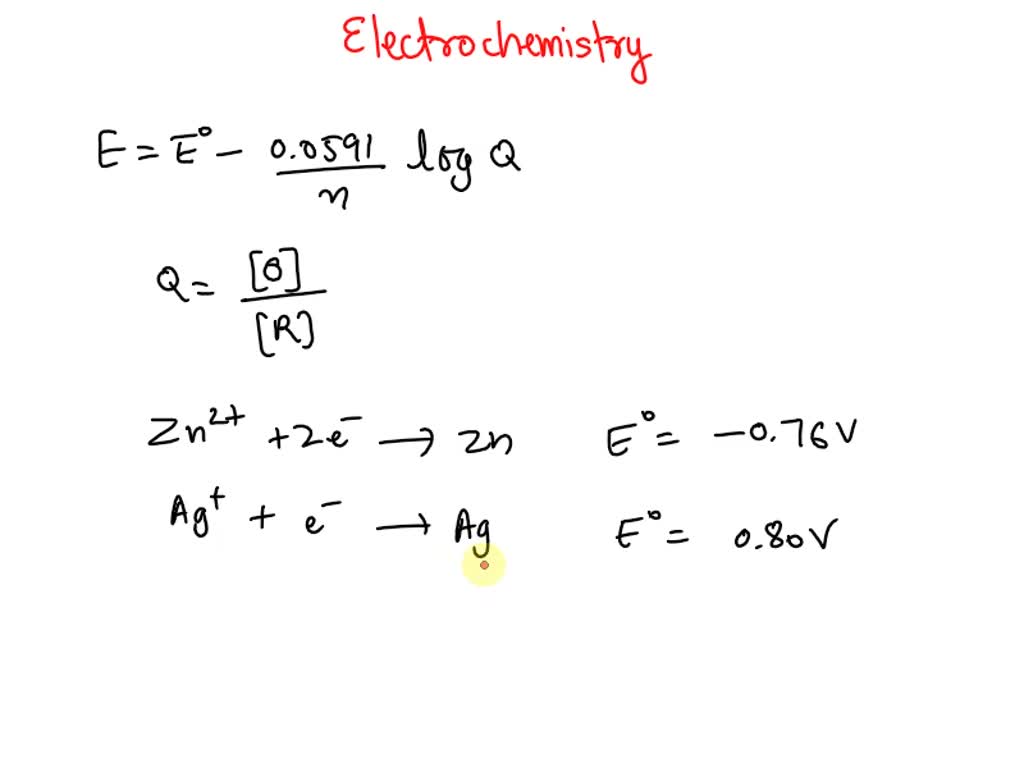 Electrochemistry
E = E° − 0.0591/n log Q
Q = [O]/[R]
Zn²⁺ + 2e⁻ → Zn E° = −0.76V
Ag⁺ + e⁻ → Ag E° = 0.80V